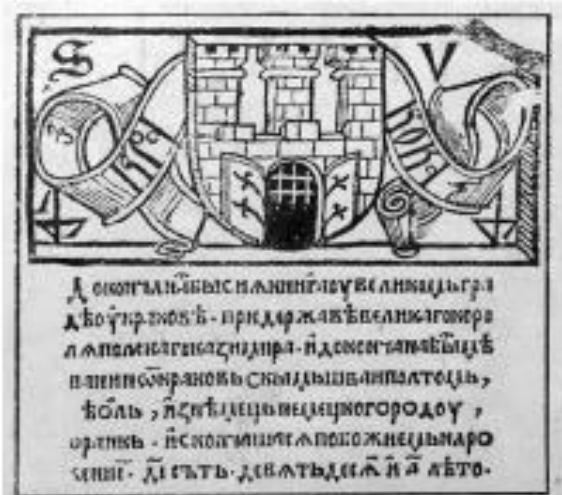 S V
кра ковъ
Докончана бы͡с сиѧ книга оу великомь гра
дѣ оу краковѣ · при державѣ великаго коро
лѧ полскаго казимира · и докончана бы͡с мѣща
ниномь краковьскымь шваиполтомь,
фѣоль, из нѣмець немецкого родоу,
франкь · и скончашасѧ по божиемь наро
жением · дı сътъ · девѧтьдесѧ͡т и а҃ лѣто ·